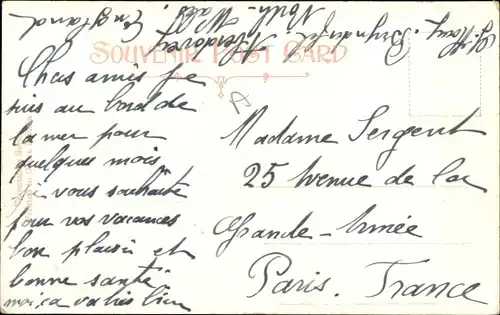 SOUVENIR POST CARD
Chas amis je
suis au bord de
la mer pour
quelques mois
je vous souhaite
pour vos vacances
bon plaisir et
bonne santé
moi, ca va très bien
Madame Sergent
25 Avenue de la
Grande-Armée
Paris. France
North-Wales, England